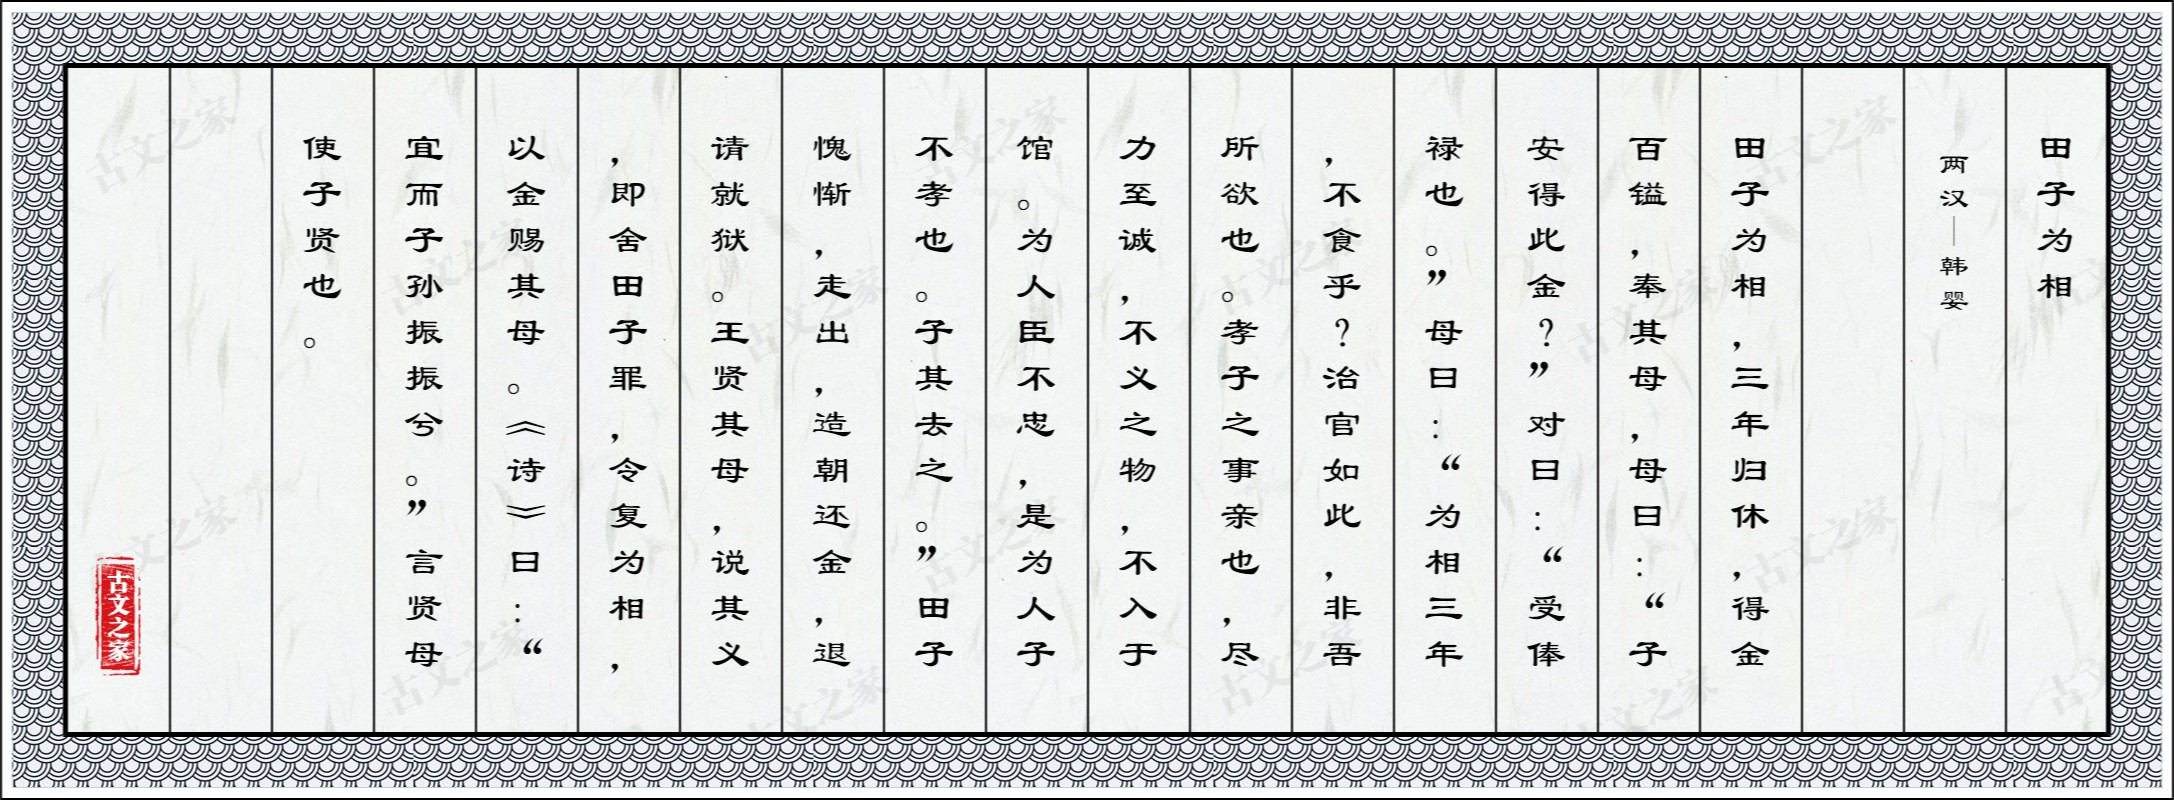 田子为相
两汉—韩婴
田子为相,三年归休,得金
百镒,奉其母,母曰:“子
安得此金?”对曰:“受俸
禄也。”母曰:“为相三年
,不食乎?治官如此,非吾
所欲也。孝子之事亲也,尽
力至诚,不义之物,不入于
馆。为人臣不忠,是为人子
不孝也。子其去之。”田子
愧惭,走出,造朝还金,退
请就狱。王贤其母,说其义
,即舍田子罪,令复为相,
以金赐其母。《诗》曰:“
宜而子孙振振兮。”言贤母
使子贤也。
古文之家